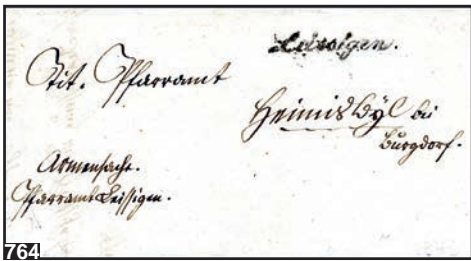 Leissigen.
Tit. Pfarramt
Heimiswyl bei
Burgdorf.
Armensache.
Pfarramt Leissigen.
764